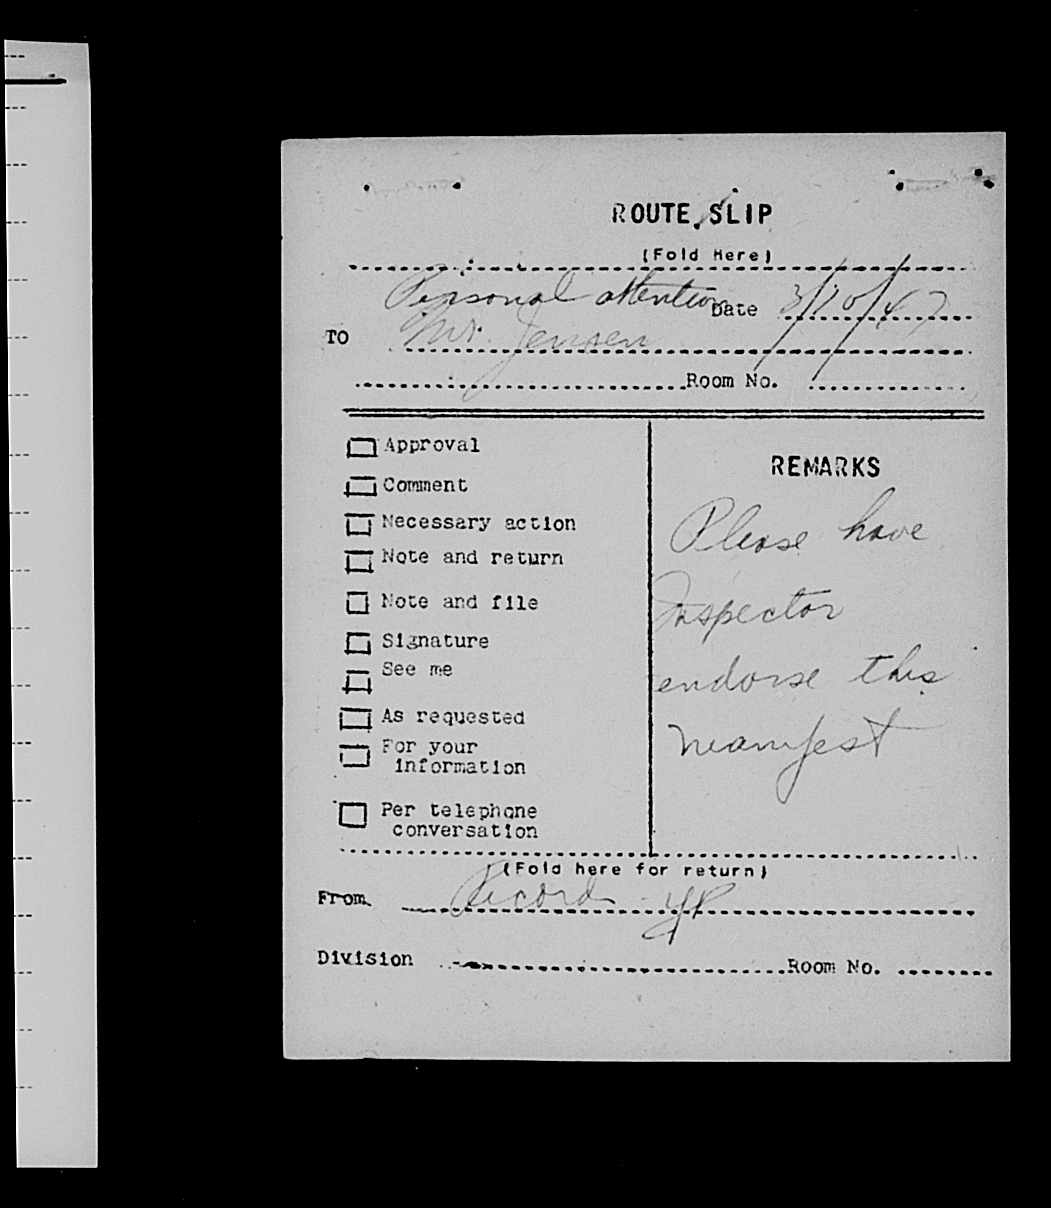 ROUTE SLIP
(Fold Here)
Personal attention Date 3/10/47
TO Mr. Jensen
Room No.
Approval
Comment
Necessary action
Note and return
Note and file
Signature
See me
As requested
For your
information
Per telephone
conversation
REMARKS
Please have
Inspector
endorse this
manifest
(Fold here for return)
From Records
Division Room No.